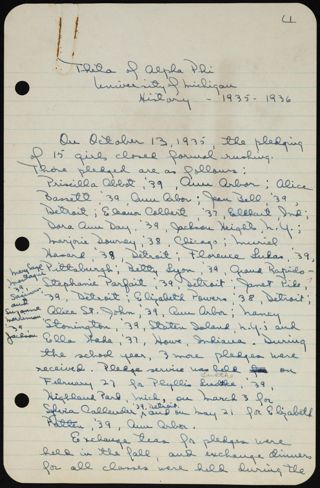 Theta of Alpha Phi
University of Michigan
History - 1935-1936
On October 13, 1935, the pledging
of 15 girls closed formal rushing.
Those pledged are as follows:
Priscilla Abbot, '39, Ann Arbor; Alice
Bassett, '39 Ann Arbor; Jean Bell '39,
Detroit; Eleanor Colbert '37, Elkhart Ind;
Dora Ann Day, '39, Jackson Heights N.Y.;
Marjorie Downey '38 Chicago; Muriel
'38, Detroit; Florence Lucas '39,
Pittsburgh; Betty Lyon '39 Grand Rapids-
Stephanie Parfait '39 Detroit; Janet Pike,
'39, Detroit; Elizabeth Powers '38 Detroit;
Alice St. John, '39, Ann Arbor; Nancy
Stonington '39, Staten Island N.Y; and
Ella '37, Howe, Indiana. During
the school year, 3 more pledges were
received. Pledge service was held
February 27 for Phyllis '39,
Highland Park, Mich, on March 3 for
Sylvia Callender '39, Detroit, and on May 21 for Elizabeth
'39, Ann Arbor.
Exchange teas for pledges were
held in the fall, and exchange dinners
for all classes were held during the
Mary Page
'39
and
Suzanne
'39
Jackson